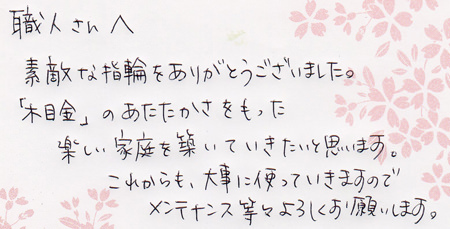 職人さんへ
素敵な指輪をありがとうございました。
「木目金」のあたたかさをもった
楽しい家庭を築いていきたいと思います。
これからも、大事に使っていきますので
メンテナンス等々よろしくお願いします。